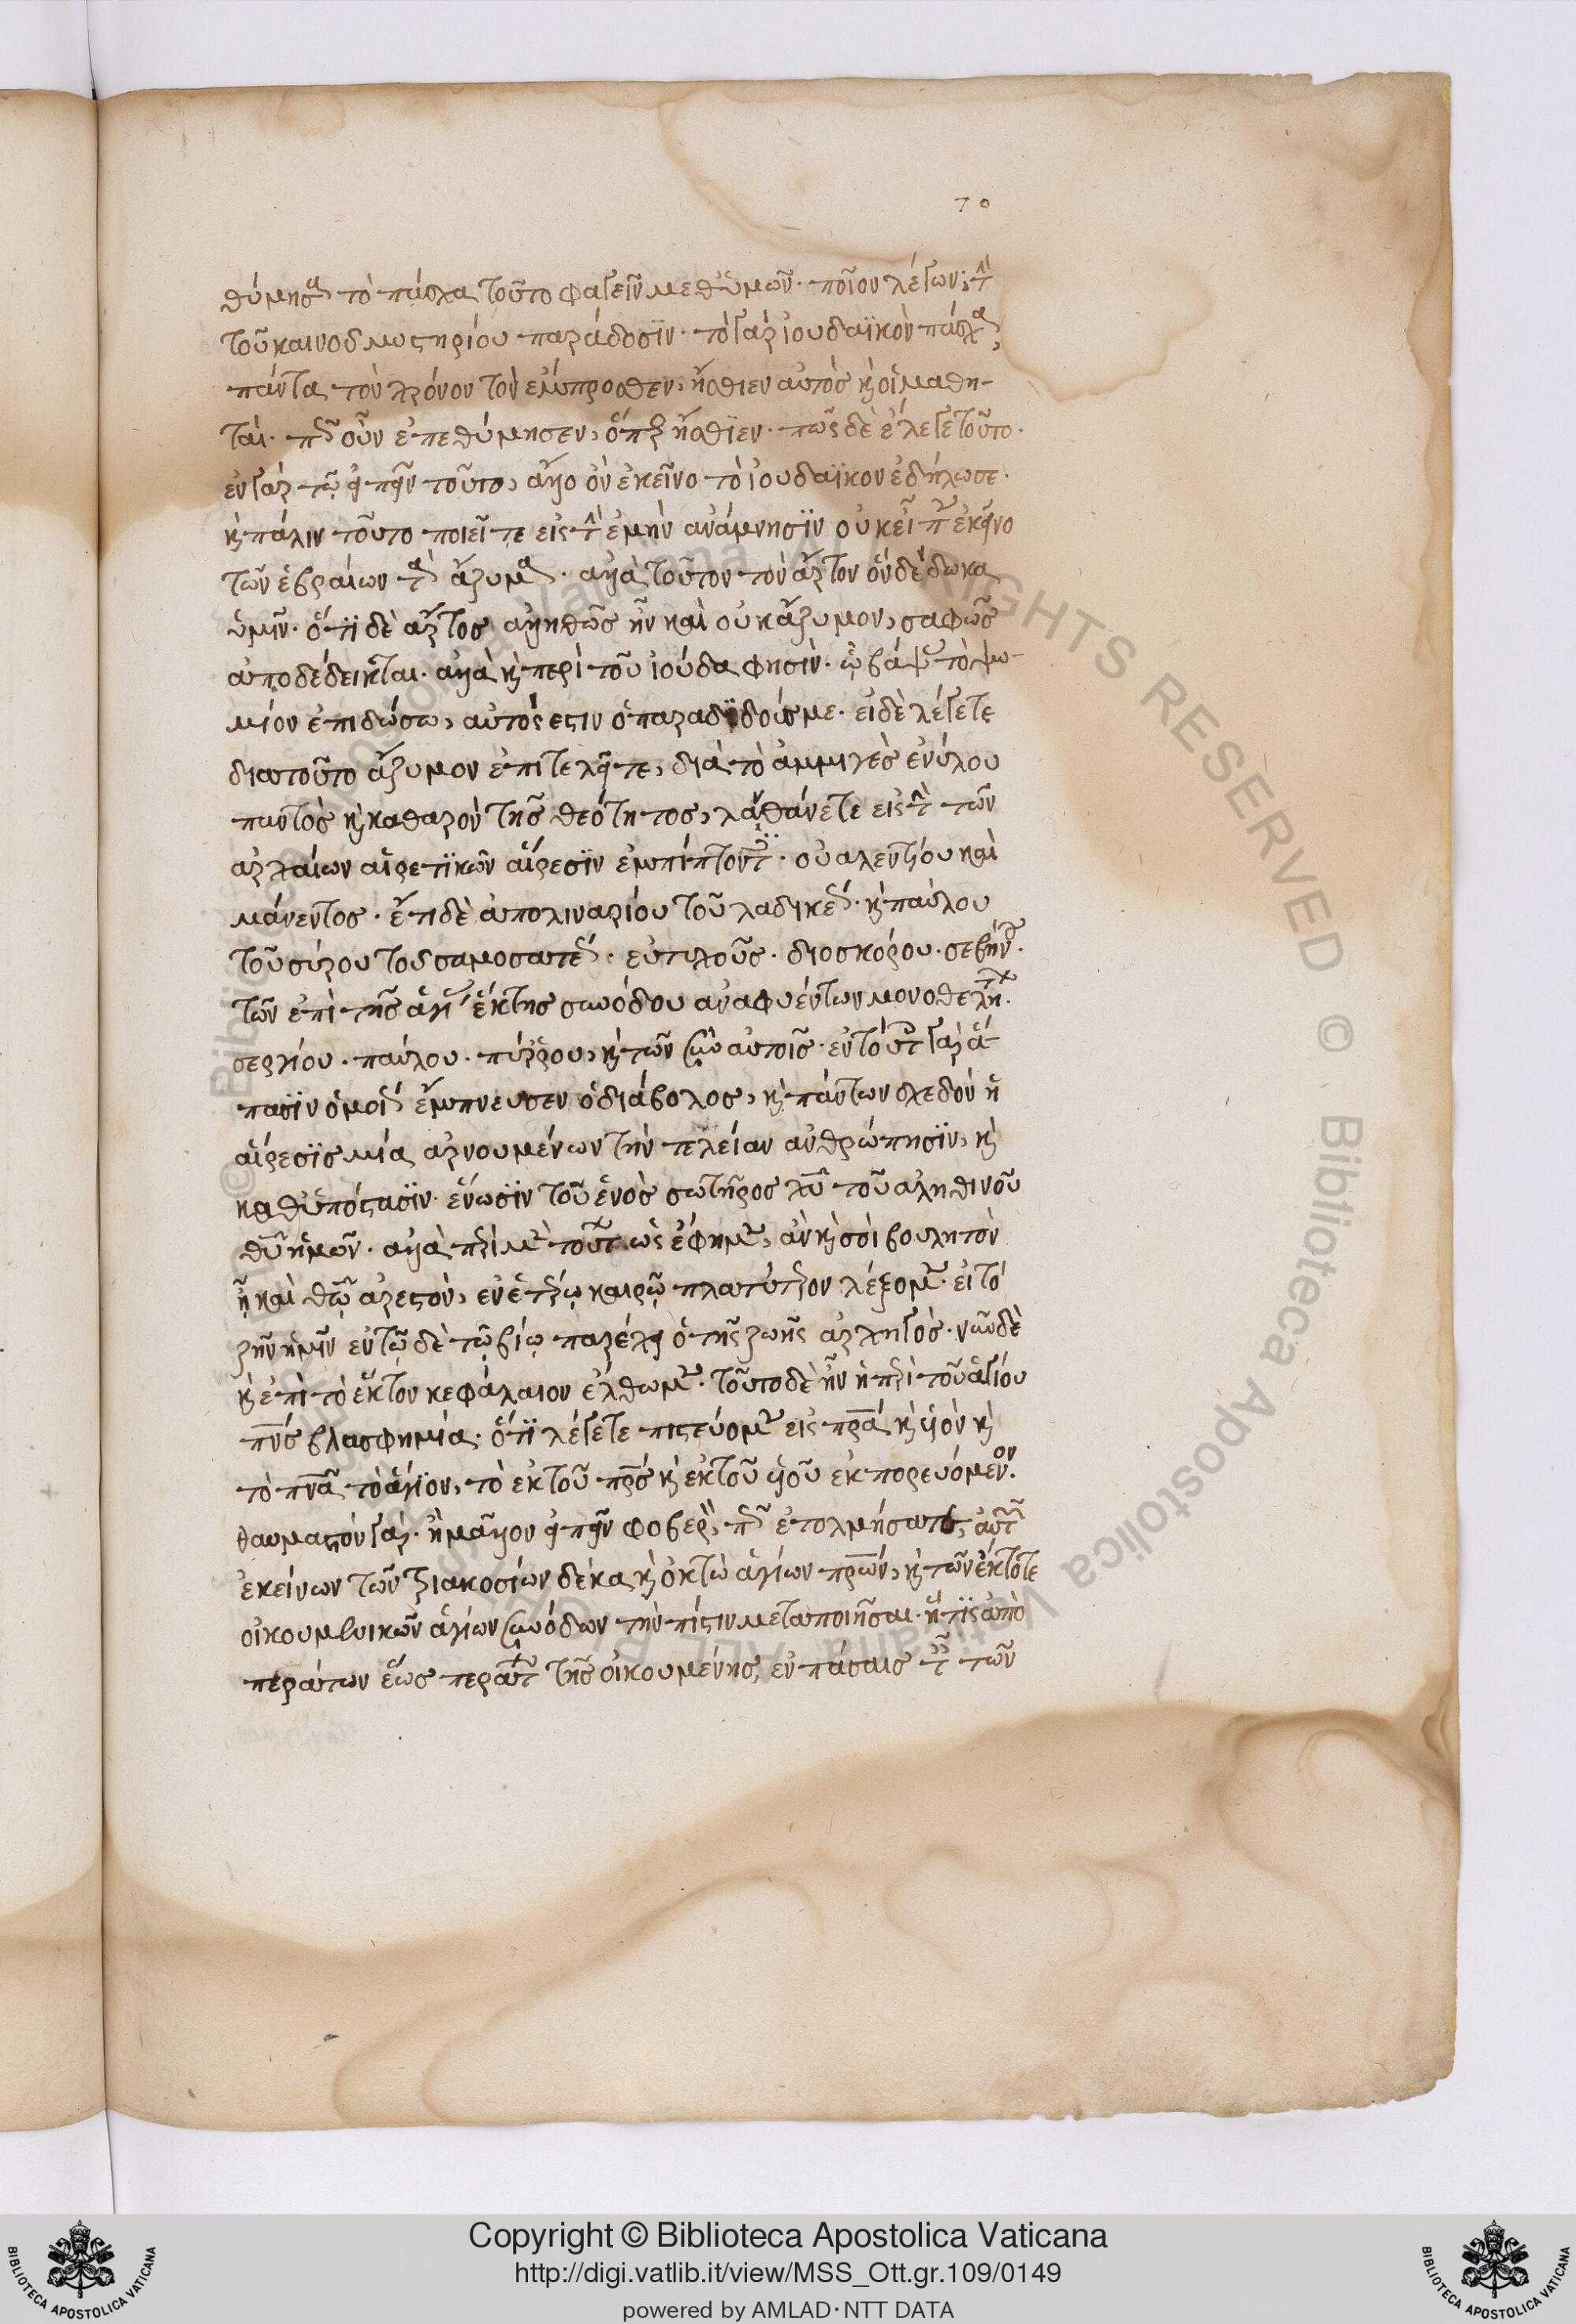 70
θύμησα τὸ πάσχα τοῦτο φαγεῖν μεθ' ὑμῶν· ποῖον λέγων; τὴν
τοῦ καινοῦ μυστηρίου παράδοσϊν· τὸ γὰρ ἰουδαϊκὸν πάσχα,
πάντα τὸν χρόνον τὸν ἔμπροσθεν, ἤσθιεν αὐτὸς κ οἱ μαθη-
ταί· πῶς οὖν ἐπεθύμησεν, ὅπερ ἤσθϊεν· πῶς δὲ ἔλεγε τοῦτο·
ἐν γὰρ τῷ εἰπεῖν τοῦτο, ἄλλο ὂν ἐκεῖνο τὸ ἰουδαϊκον ἐδήλωσε·
κ πάλιν τοῦτο ποιεῖτε εἰς τὴν ἐμὴν ἀνάμνησϊν οὐκ εἶπεν ἐκεῖνο
τῶν ἑβραίων τὰ ἄζυμα· ἀλλὰ τοῦτον τὸν ἄρτον ὃν δέδωκα
ὑμῖν· ὅτϊ δὲ ἄρτος ἀληθῶς ἦν καὶ οὐκ ἄζυμον, σαφῶς
ἀποδέδεικται· ἀλλὰ κ περὶ τοῦ ἰούδα φησὶν· ᾧ βάψας τὸ ψω-
μίον ἐπιδώσω, αὐτός ἐστιν ὁ παραδϊδούς με· εἰ δὲ λέγετε
διατοῦτο ἄζυμον ἐπιτελεῖτε, διὰ τὸ ἀμμιγὲς ἐνύλου
παντὸς κ καθαρὸν τῆς θεότητος, λανθάνετε εἰς τὴν τῶν
ἀρχαίων αἱρετϊκῶν αἵρεσϊν ἐμπίπτοντες· οὐαλεντίου καὶ
μάνεντος· ἔτι δὲ ἀπολιναρίου τοῦ λαδικέως· κ παύλου
τοῦ σύρου τοῦ σαμοσατέως· εὐτυχοῦς· διοσκόρου· σεβήρου·
τῶν ἐπὶ τῆς ἁγίας ἕκτης συνόδου ἀναφυέντων μονοθελητῶν·
σεργίου· παύλου· πύρρου, κ τῶν σὺν αὐτοῖς· ἐν τούτοις γὰρ ἅ-
πασϊν ὁμοίως ἔμπνευσεν ὁ διάβολος, κ πάντων σχεδὸν ἡ
αἵρεσϊς μία ἀρνουμένων τὴν τελείαν ἀνθρώπησϊν, κ
καθ' ὑπόστασϊν· ἕνωσϊν τοῦ ἑνὸς σωτῆρος χυ τοῦ ἀληθινοῦ
θυ ἡμῶν· ἀλλὰ περὶ μὲν τούτων ὡς ἔφημεν, ἂν κ σοὶ βουλητὸν
ᾖ καὶ θῶ ἀρεστὸν, ἐν ἑτέρῳ καιρῷ πλατύτερον λέξομεν· εἰ τὸ
ζῆν ἡμῖν ἐν τῷδὲ τῷ βίῳ παρέχει ὁ τῆς ζωῆς ἀρχηγός· νῦν δὲ
κ ἐπὶ τὸ ἕκτον κεφάλαιον ἔλθωμεν· τοῦτο δὲ ἦν ἡ περὶ τοῦ ἁγίου
πνς βλασφημία· ὅτϊ λέγετε πιστεύομεν εἰς πρα κ υἱὸν κ
τὸ πνα τὸ ἅγϊον, τὸ ἐκ τοῦ πρς κ ἐκ τοῦ υἱοῦ ἐκπορευόμενον·
θαυμαστὸν γὰρ· ἢ μᾶλλον εἰπεῖν φοβερὸν, πῶς ἐτολμήσατε, αὐτῶν
ἐκείνων τῶν τριακοσίων δέκα κ ὀκτὼ ἁγίων πρων, κ τῶν ἔκτοτε
οἰκουμενικῶν ἁγίων συνόδων τὴν πίστιν μεταποιῆσαι· ἥτϊς ἀπὸ
περάτων ἕως περάτων τῆς οἰκουμένης, ἐν πάσαις ταῖς τῶν
Copyright © Biblioteca Apostolica Vaticana
http://digi.vatlib.it/view/MSS_Ott.gr.109/0149
powered by AMLAD·NTT DATA
BIBLIOTECA APOSTOLICA VATICANA
BIBLIOTECA APOSTOLICA VATICANA
© Biblioteca Apostolica Vaticana ALL RIGHTS RESERVED